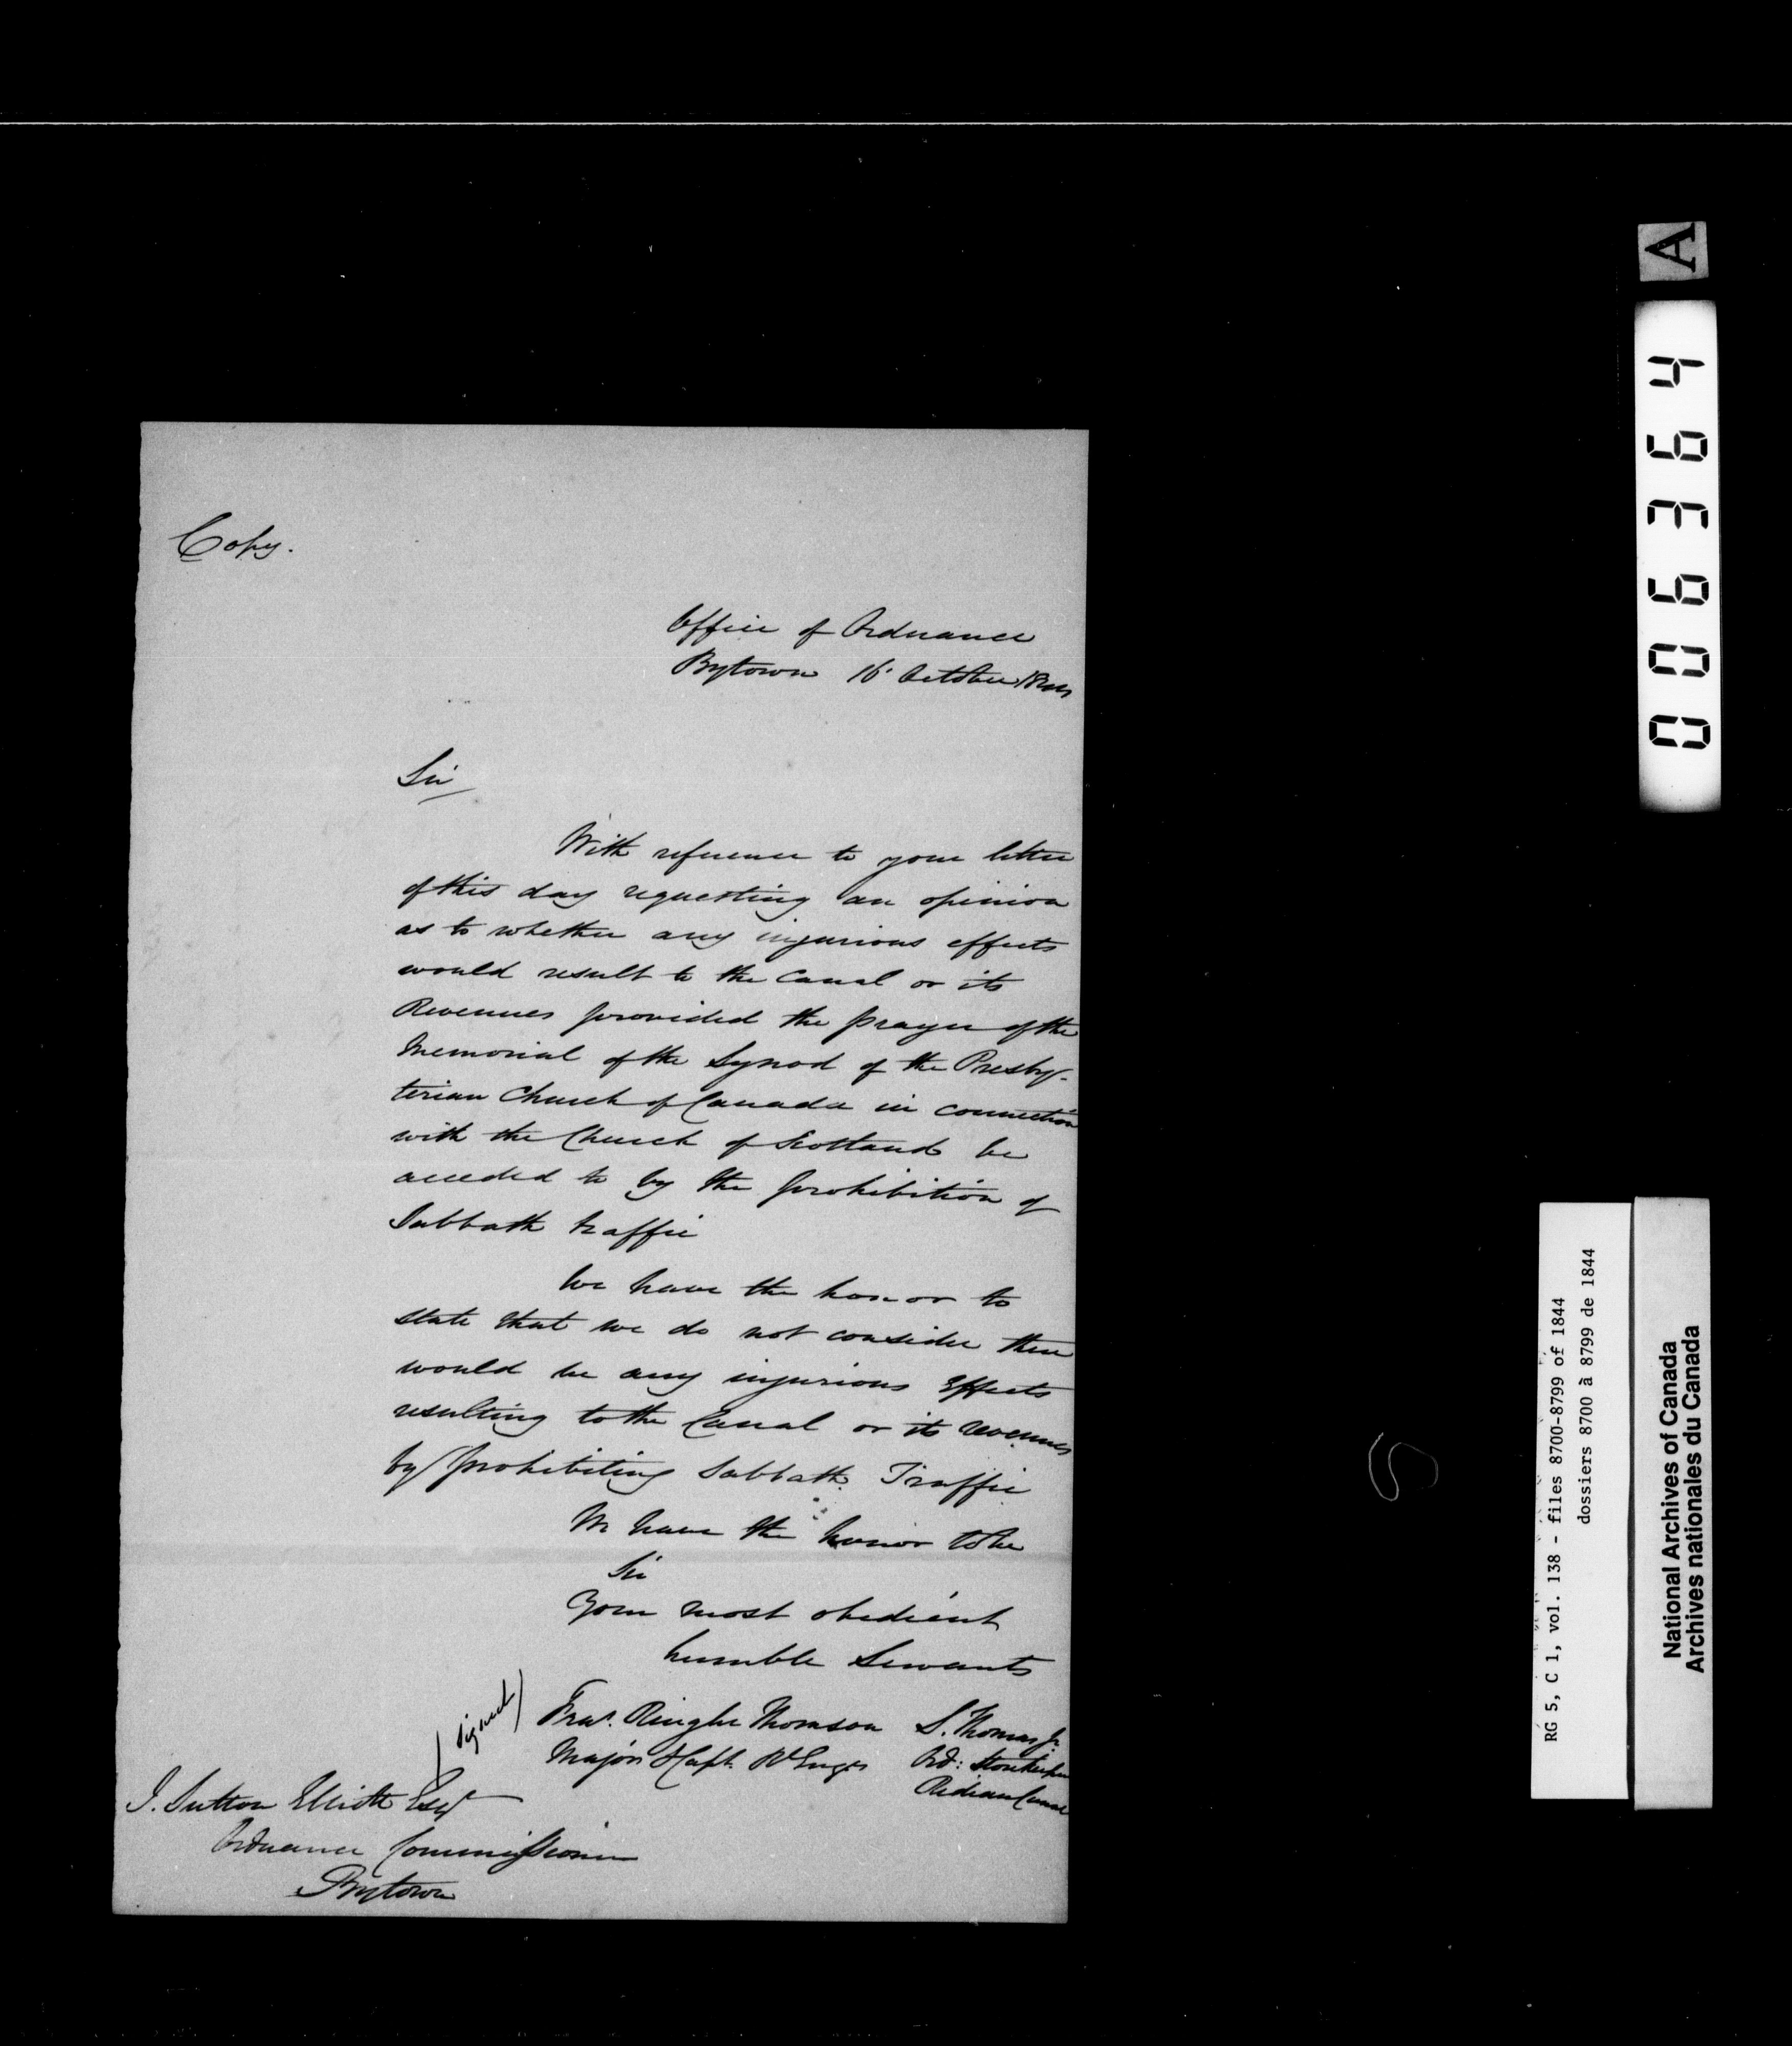 Copy.
Office of Ordnance
Bytown 16 October 1844
Sir
With reference to your letter
of this day requesting an opinion
as to whether any injurious effects
would result to the Canal or its
Revenues provided the prayer of the
Memorial of the Synod of the Presby-
terian Church of Canada in connection
with the Church of Scotland be
acceded to by the prohibition of
Sabbath traffic
We have the honor to
state that we do not consider there
would be any injurious Effects
resulting to the Canal or its revenues
by prohibiting Sabbath Traffic
We have the honor to be
Sir
Your most obedient
humble Servants
(signed) Fras. Ringler Thomson S. Thomas Jr.
Major & Capt. Rl Engrs Ord: Storekeeper
Rideau Canal
J. Sutton Elliott Esqr
Ordnance Commissioner
Bytown
A
006364
RG 5, C 1, vol. 138 - files 8700-8799 of 1844
dossiers 8700 à 8799 de 1844
National Archives of Canada
Archives nationales du Canada